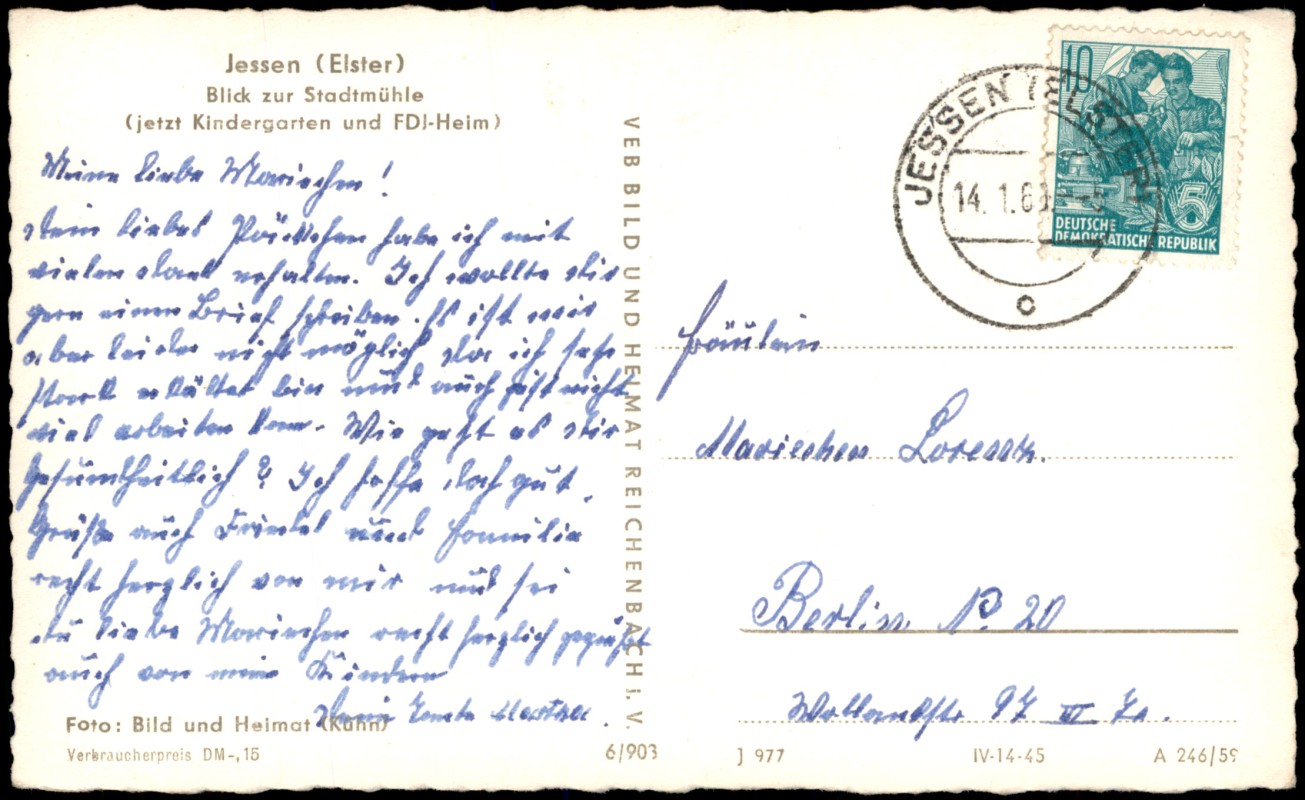 Jessen (Elster)
Blick zur Stadtmühle
(jetzt Kindergarten und FDJ-Heim)
Meine liebe Mariechen!
Dein liebes Päckchen habe ich mit
vielen Dank erhalten. Ich wollte Dir
gern einen Brief schreiben. Es ist mir
aber leider nicht möglich, da ich sehr
stark erkältet bin und auch nicht
viel arbeiten kann. Wie geht es Dir
gesundheitlich? Ich hoffe doch gut.
Grüße auch Friedel und Familie
recht herzlich von mir und sei
Du liebe Mariechen recht herzlich gegrüßt
auch von meine Kindern
Deine Tante Martha.
Foto: Bild und Heimat (Kühn)
Verbraucherpreis DM -,15
VEB BILD UND HEIMAT REICHENBACH i. V.
6/903
JESSEN (ELSTER)
14. 1. 6
c
10
5
DEUTSCHE
DEMOKRATISCHE REPUBLIK
Fräulein
Mariechen
Berlin N. 20
97 III
J 977
IV-14-45
A 246/59